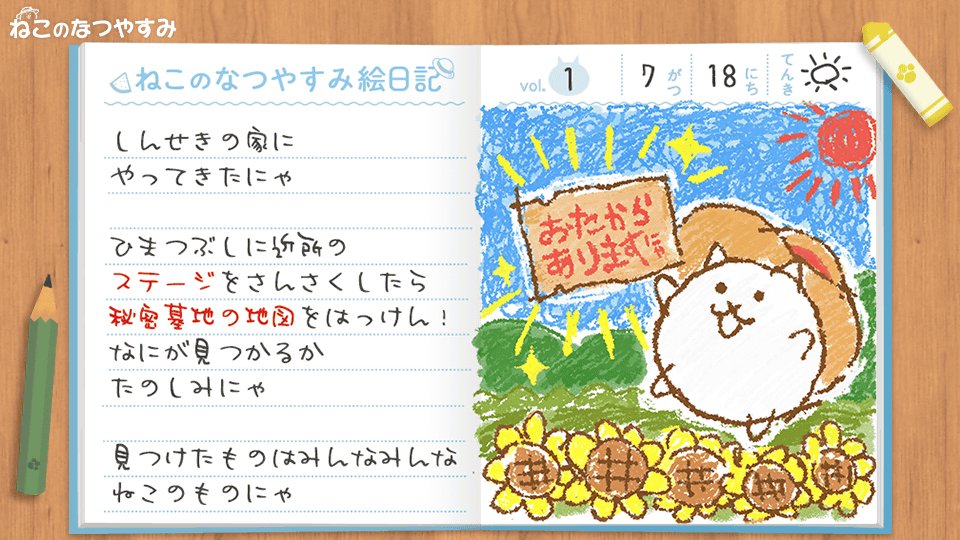 ねこのなつやすみ
ねこのなつやすみ絵日記
vol. 1
7がつ
18にち
てんき
しんせきの家に
やってきたにゃ
ひまつぶしに近所の
ステージをさんさくしたら
秘密基地の地図をはっけん！
なにが見つかるか
たのしみにゃ
見つけたものはみんなみんな
ねこのものにゃ
おたから
ありますにゃ